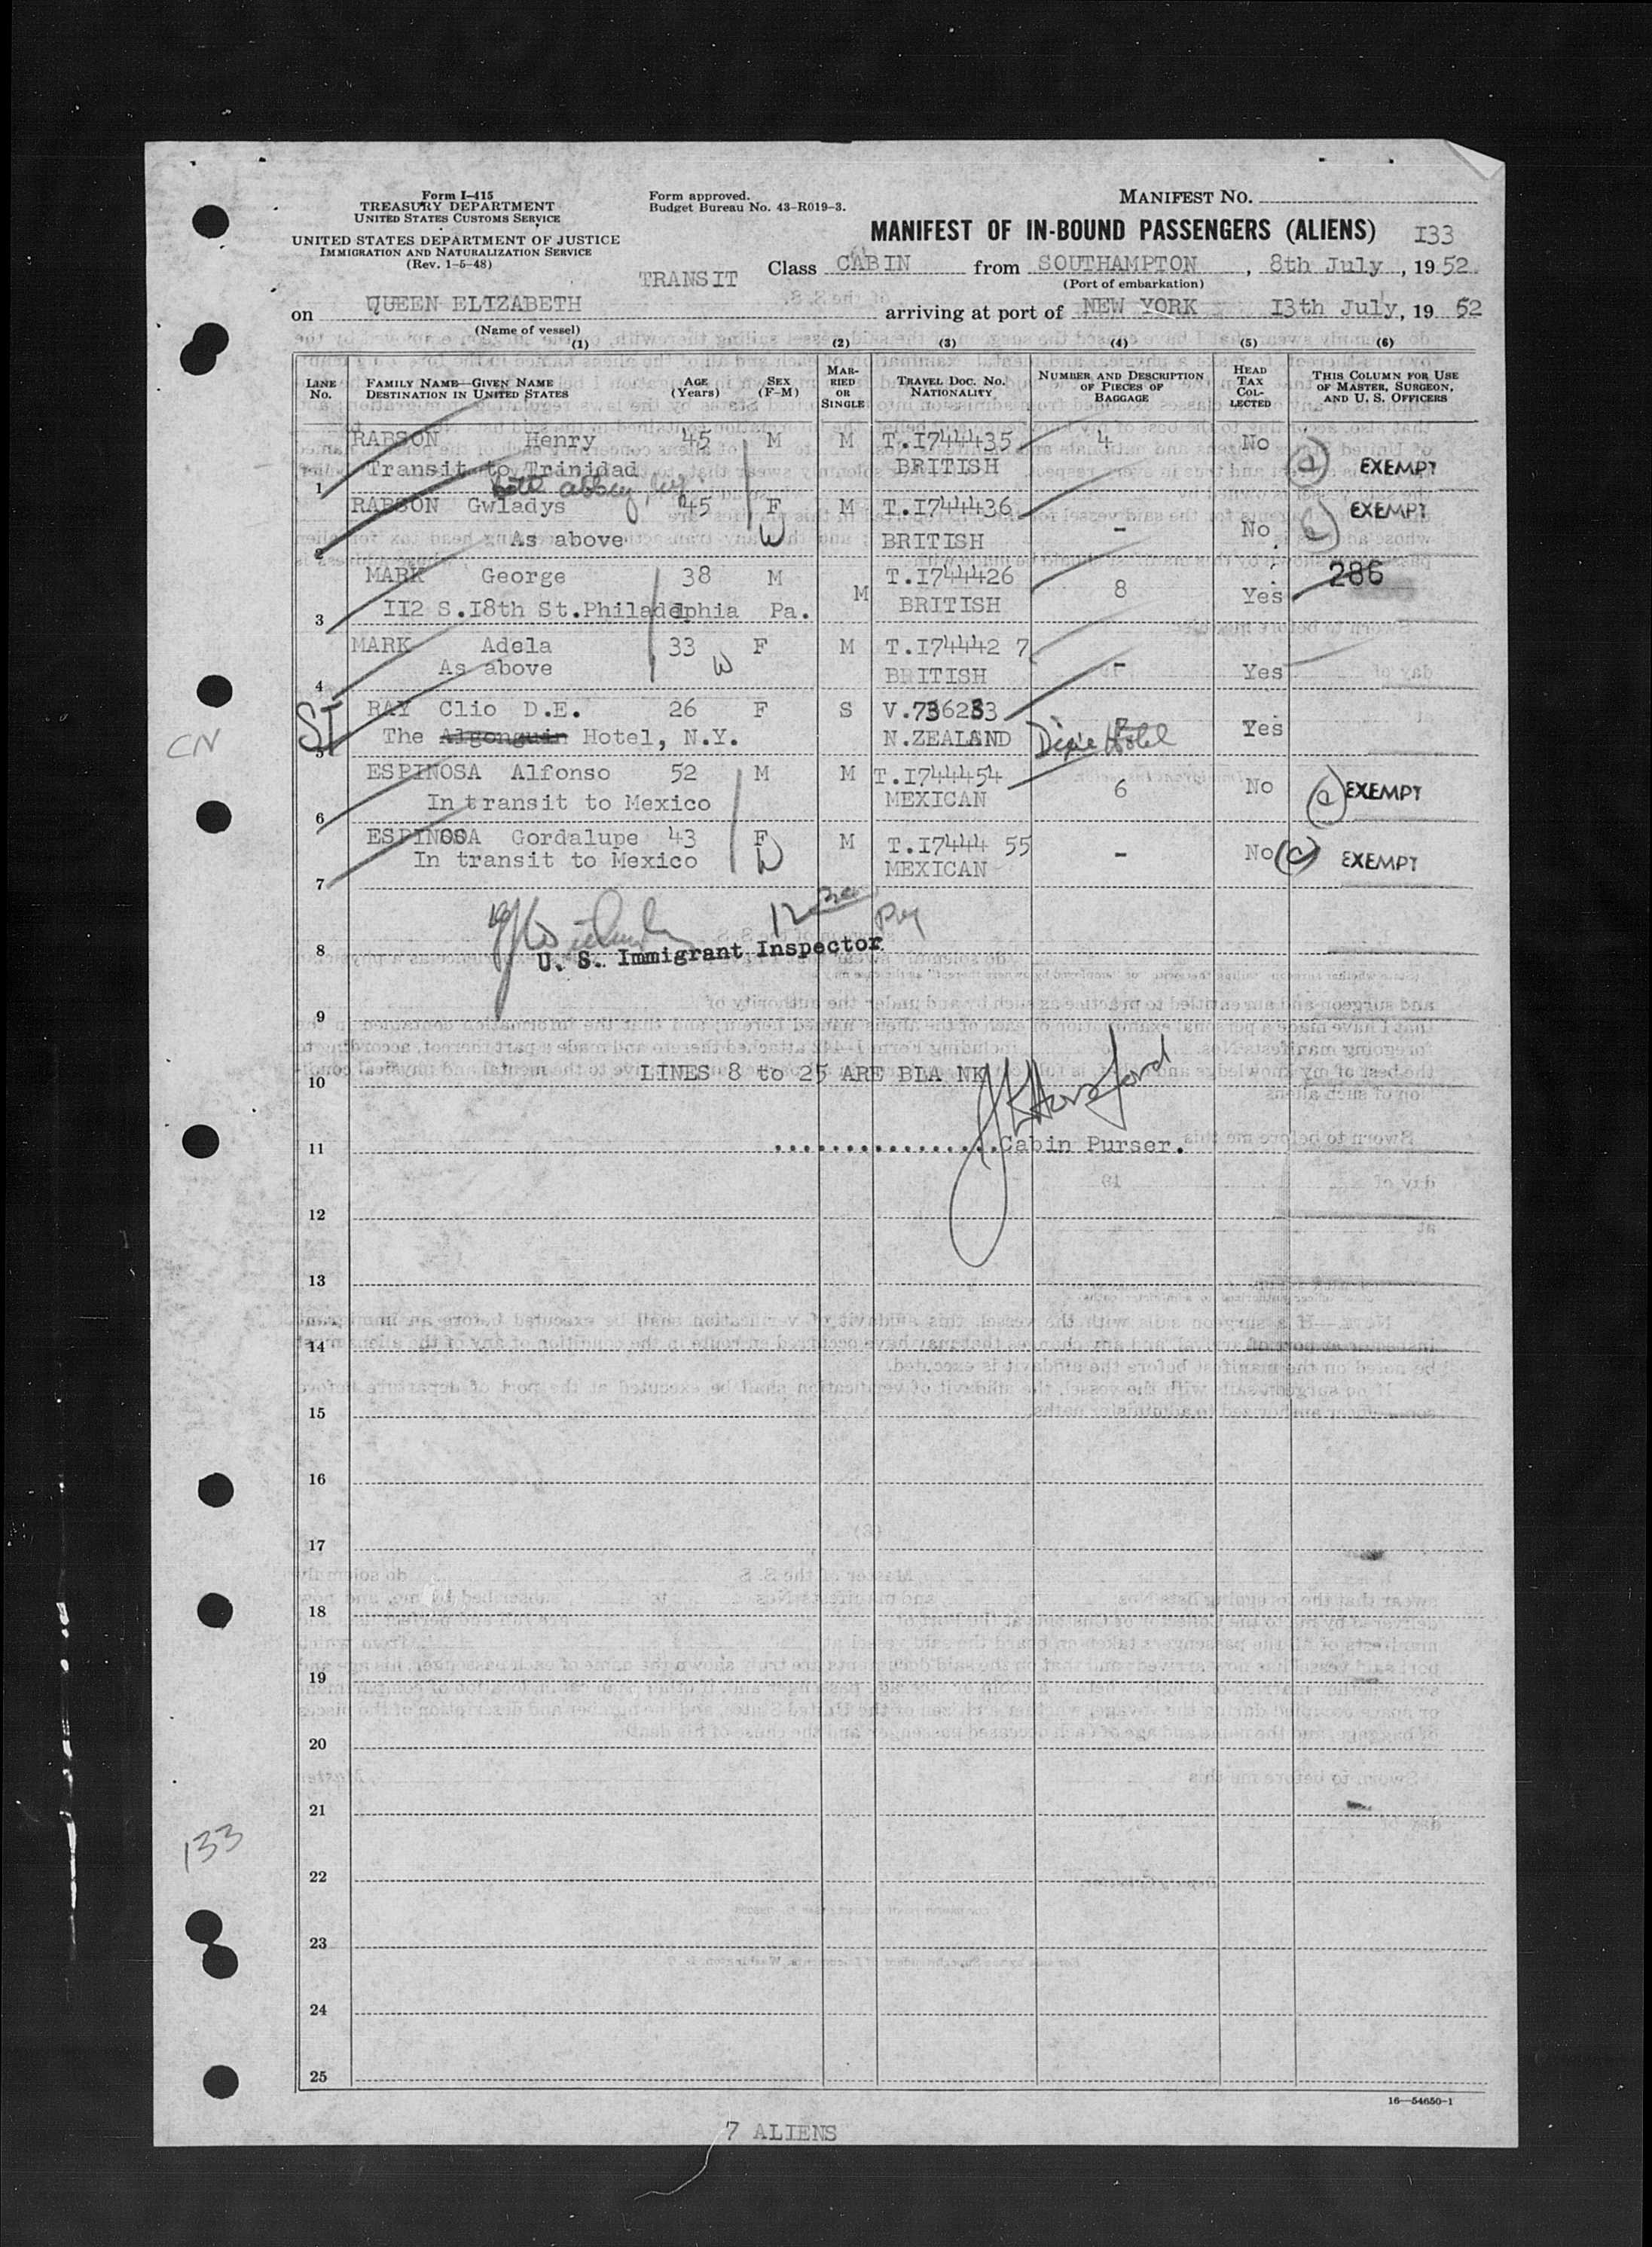 Form I-415
TREASURY DEPARTMENT
UNITED STATES CUSTOMS SERVICE
UNITED STATES DEPARTMENT OF JUSTICE
IMMIGRATION AND NATURALIZATION SERVICE
(Rev. 1-5-48)
Form approved.
Budget Bureau No. 43-R019-3.
MANIFEST NO.
MANIFEST OF IN-BOUND PASSENGERS (ALIENS) I33
TRANSIT Class CABIN from SOUTHAMPTON, 8th July, 1952.
(Port of embarkation)
on QUEEN ELIZABETH arriving at port of NEW YORK I3th July, 19 52
(Name of vessel)
(1) (2) (3) (4) (5) (6)
LINE No. FAMILY NAME—GIVEN NAME DESTINATION IN UNITED STATES AGE (Years) SEX (F-M) MARRIED OR SINGLE TRAVEL DOC. NO. NATIONALITY NUMBER AND DESCRIPTION OF PIECES OF BAGGAGE HEAD TAX COLLECTED THIS COLUMN FOR USE OF MASTER, SURGEON, AND U. S. OFFICERS
RABSON Henry 45 M M T.I744435 4 No EXEMPT
1 Transit to Trinidad BRITISH
RABSON Gwladys 45 F M T.I744436 - No EXEMPT
2 As above W BRITISH
MARK George 38 M M T.I744426 8 Yes 286
3 II2 S.I8th St.Philadelphia Pa. BRITISH
MARK Adela 33 F M T.I74442 7 - Yes
4 As above W BRITISH
ST
CN
RAY Clio D.E. 26 F S V.736233 Yes
5 The Algonquin Hotel, N.Y. N.ZEALAND Dixie Hotel
ESPINOSA Alfonso 52 M M T.I744454 6 No EXEMPT
6 In transit to Mexico MEXICAN
ESPINOSA Gordalupe 43 F M T.I7444 55 - No (c) EXEMPT
7 In transit to Mexico W MEXICAN
8 U. S. Immigrant Inspector
9
10 LINES 8 to 25 ARE BLA NK
11 ................Cabin Purser.
12
13
14
15
16
17
18
19
20
21
133
22
23
24
25
16—54650-1
7 ALIENS